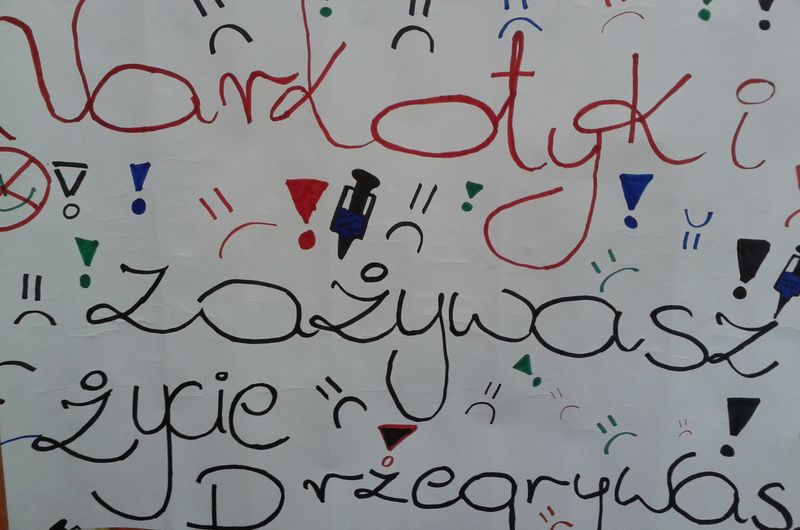 Narkotyki
zażywasz
życie
przegrywasz